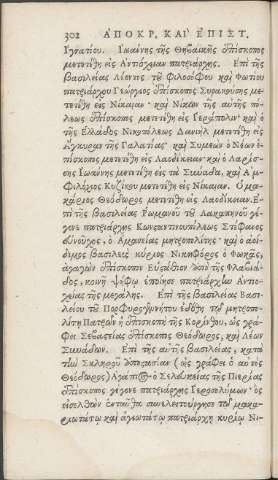 302 ΑΠΟΚΡ. ΚΑΙ ΕΠΙΣΤ.
Ιγνατίου. Ιωαννης τῆς Θηβαϊκῆς ἐπίσκοπος
μετετέθη εἰς Αντιόχειαν πατριάρχης. Επὶ τῆς
βασιλείας Λέοντος τοῦ φιλοσόφου καὶ Φωτίου
πατριάρχου Γεώργιος ἐπίσκοπος Συρακούσης με-
τετέθη εἰς Νίκαιαν· καὶ Νίκων τῆς αὐτῆς πό-
λεως ἐπίσκοπος μετετέθη εἰς Ιεράπολιν· καὶ ὁ
τῆς Ελλάδος Νικοπόλεως Δανιὴλ μετετέθη εἰς
Αγκυραν τῆς Γαλατίας· καὶ Συμεὼν ὁ Νέων ἐ-
πίσκοπος μετετέθη εἰς Λαοδίκειαν· καὶ ὁ Λαρίσ-
σης Ιωαννης μετετέθη εἰς τὰ Σιμύαδα, καὶ Αμ-
φιλόχιος Κυζίκου μετετέθη εἰς Νίκαιαν. Ο μα-
κάριος Θεόδωρος μετετέθη εἰς Λαοδίκειαν. Ε-
πὶ τῆς βασιλείας Ρωμανοῦ τοῦ Λακαπηνοῦ γέ-
γονε πατριάρχης Κωνσταντινουπόλεως Στέφανος
εὐνοῦχος, ὁ Αμασείας μητροπολίτης· καὶ ὁ ἀοί-
διμος βασιλεὺς κύριος Νικηφόρος ὁ Φωκᾶς,
ἀγαγὼν ἐπίσκοπον Εὐστάθιον ἀπὸ τῆς Φλαβιά-
δος, κοινῇ ψήφῳ ἐποίησε πατριάρχην Αντιο-
χείας τῆς μεγάλης. Επὶ τῆς βασιλείας Βασι-
λείου τοῦ Πορφυρογεννήτου ἐδόθη τοῦ μητροπο-
λίτῃ Πατρῶν ἡ ἐπισκοπὴ τῆς Κορίνθου, ὡς γρά-
φει Σεβαστείας ἐπίσκοπος Θεόδωρος, καὶ Λέων
Σιννάδων. Επὶ τῆς αὐτῆς βασιλείας, κατὰ
τὴν Σκληροῦ ἀποστασίαν (ὡς γράφει ὁ αὐτὸς
Θεόδωρος) Αγάπιος ὁ Σελευκείας τῆς Πιερίας
ἐπίσκοπος γέγονε πατριάρχης Ιεροσολύμων· ὃς
εἰσελθὼν ἐνταῦθα συνελειτούργησε τοῦ μακα-
ριωτάτῳ καὶ ἁγιωτάτῳ πατριάρχῃ κυρίῳ Νι-